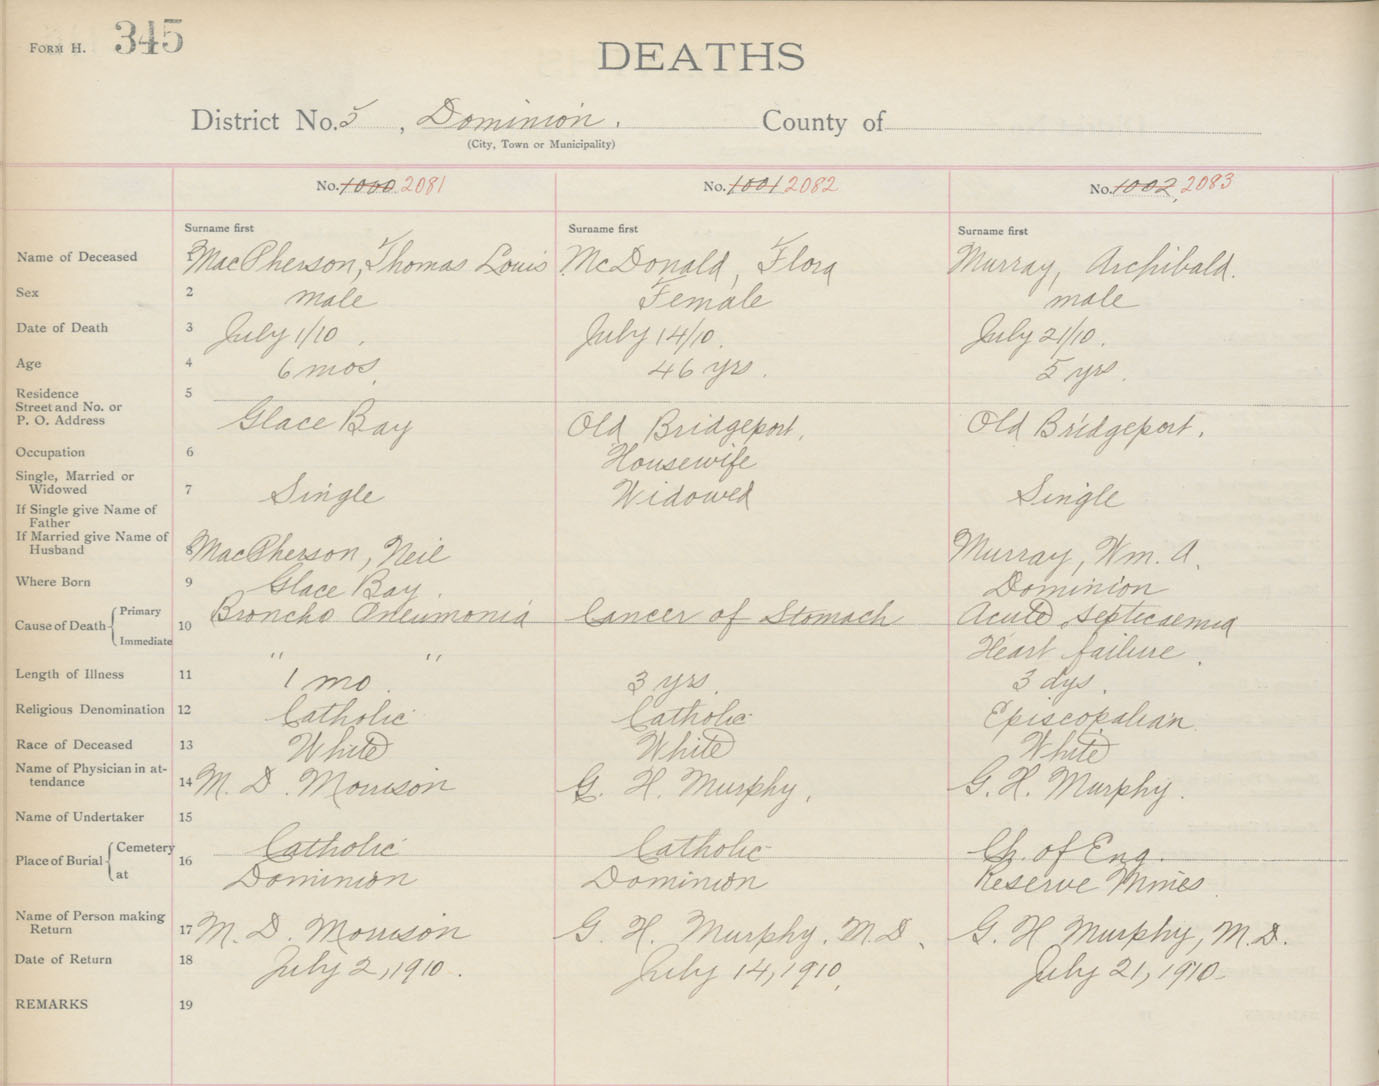 FORM H. 345
DEATHS
District No. 5, Dominion. County of
(City, Town or Municipality)
No. 1000 2081 No. 1001 2082 No. 1002, 2083
Surname first Surname first Surname first
Name of Deceased 1 MacPherson, Thomas Louis McDonald, Flora Murray, Archibald.
Sex 2 male Female male
Date of Death 3 July 1/10. July 14/10. July 21/10.
Age 4 6 mos. 46 yrs. 5 yrs.
Residence 5
Street and No. or
P. O. Address Glace Bay Old Bridgeport. Old Bridgeport.
Occupation 6 Housewife
Single, Married or
Widowed 7 Single Widowed Single
If Single give Name of
Father
If Married give Name of
Husband 8 MacPherson, Neil Murray, Wm. A.
Where Born 9 Glace Bay. Dominion
Cause of Death Primary 10 Broncho Pneumonia Cancer of Stomach Acute Septicaemia
Immediate " " Heart failure.
Length of Illness 11 1 mo. 3 yrs. 3 dys.
Religious Denomination 12 Catholic Catholic Episcopalian
Race of Deceased 13 White White White
Name of Physician in at-
tendance 14 M. D. Morrison G. H. Murphy. G. H. Murphy.
Name of Undertaker 15
Place of Burial Cemetery 16 Catholic Catholic Ch. of Eng.
at Dominion Dominion Reserve Mines
Name of Person making
Return 17 M. D. Morrison G. H. Murphy. M.D. G. H Murphy, M.D.
Date of Return 18 July 2, 1910. July 14, 1910. July 21, 1910
REMARKS 19